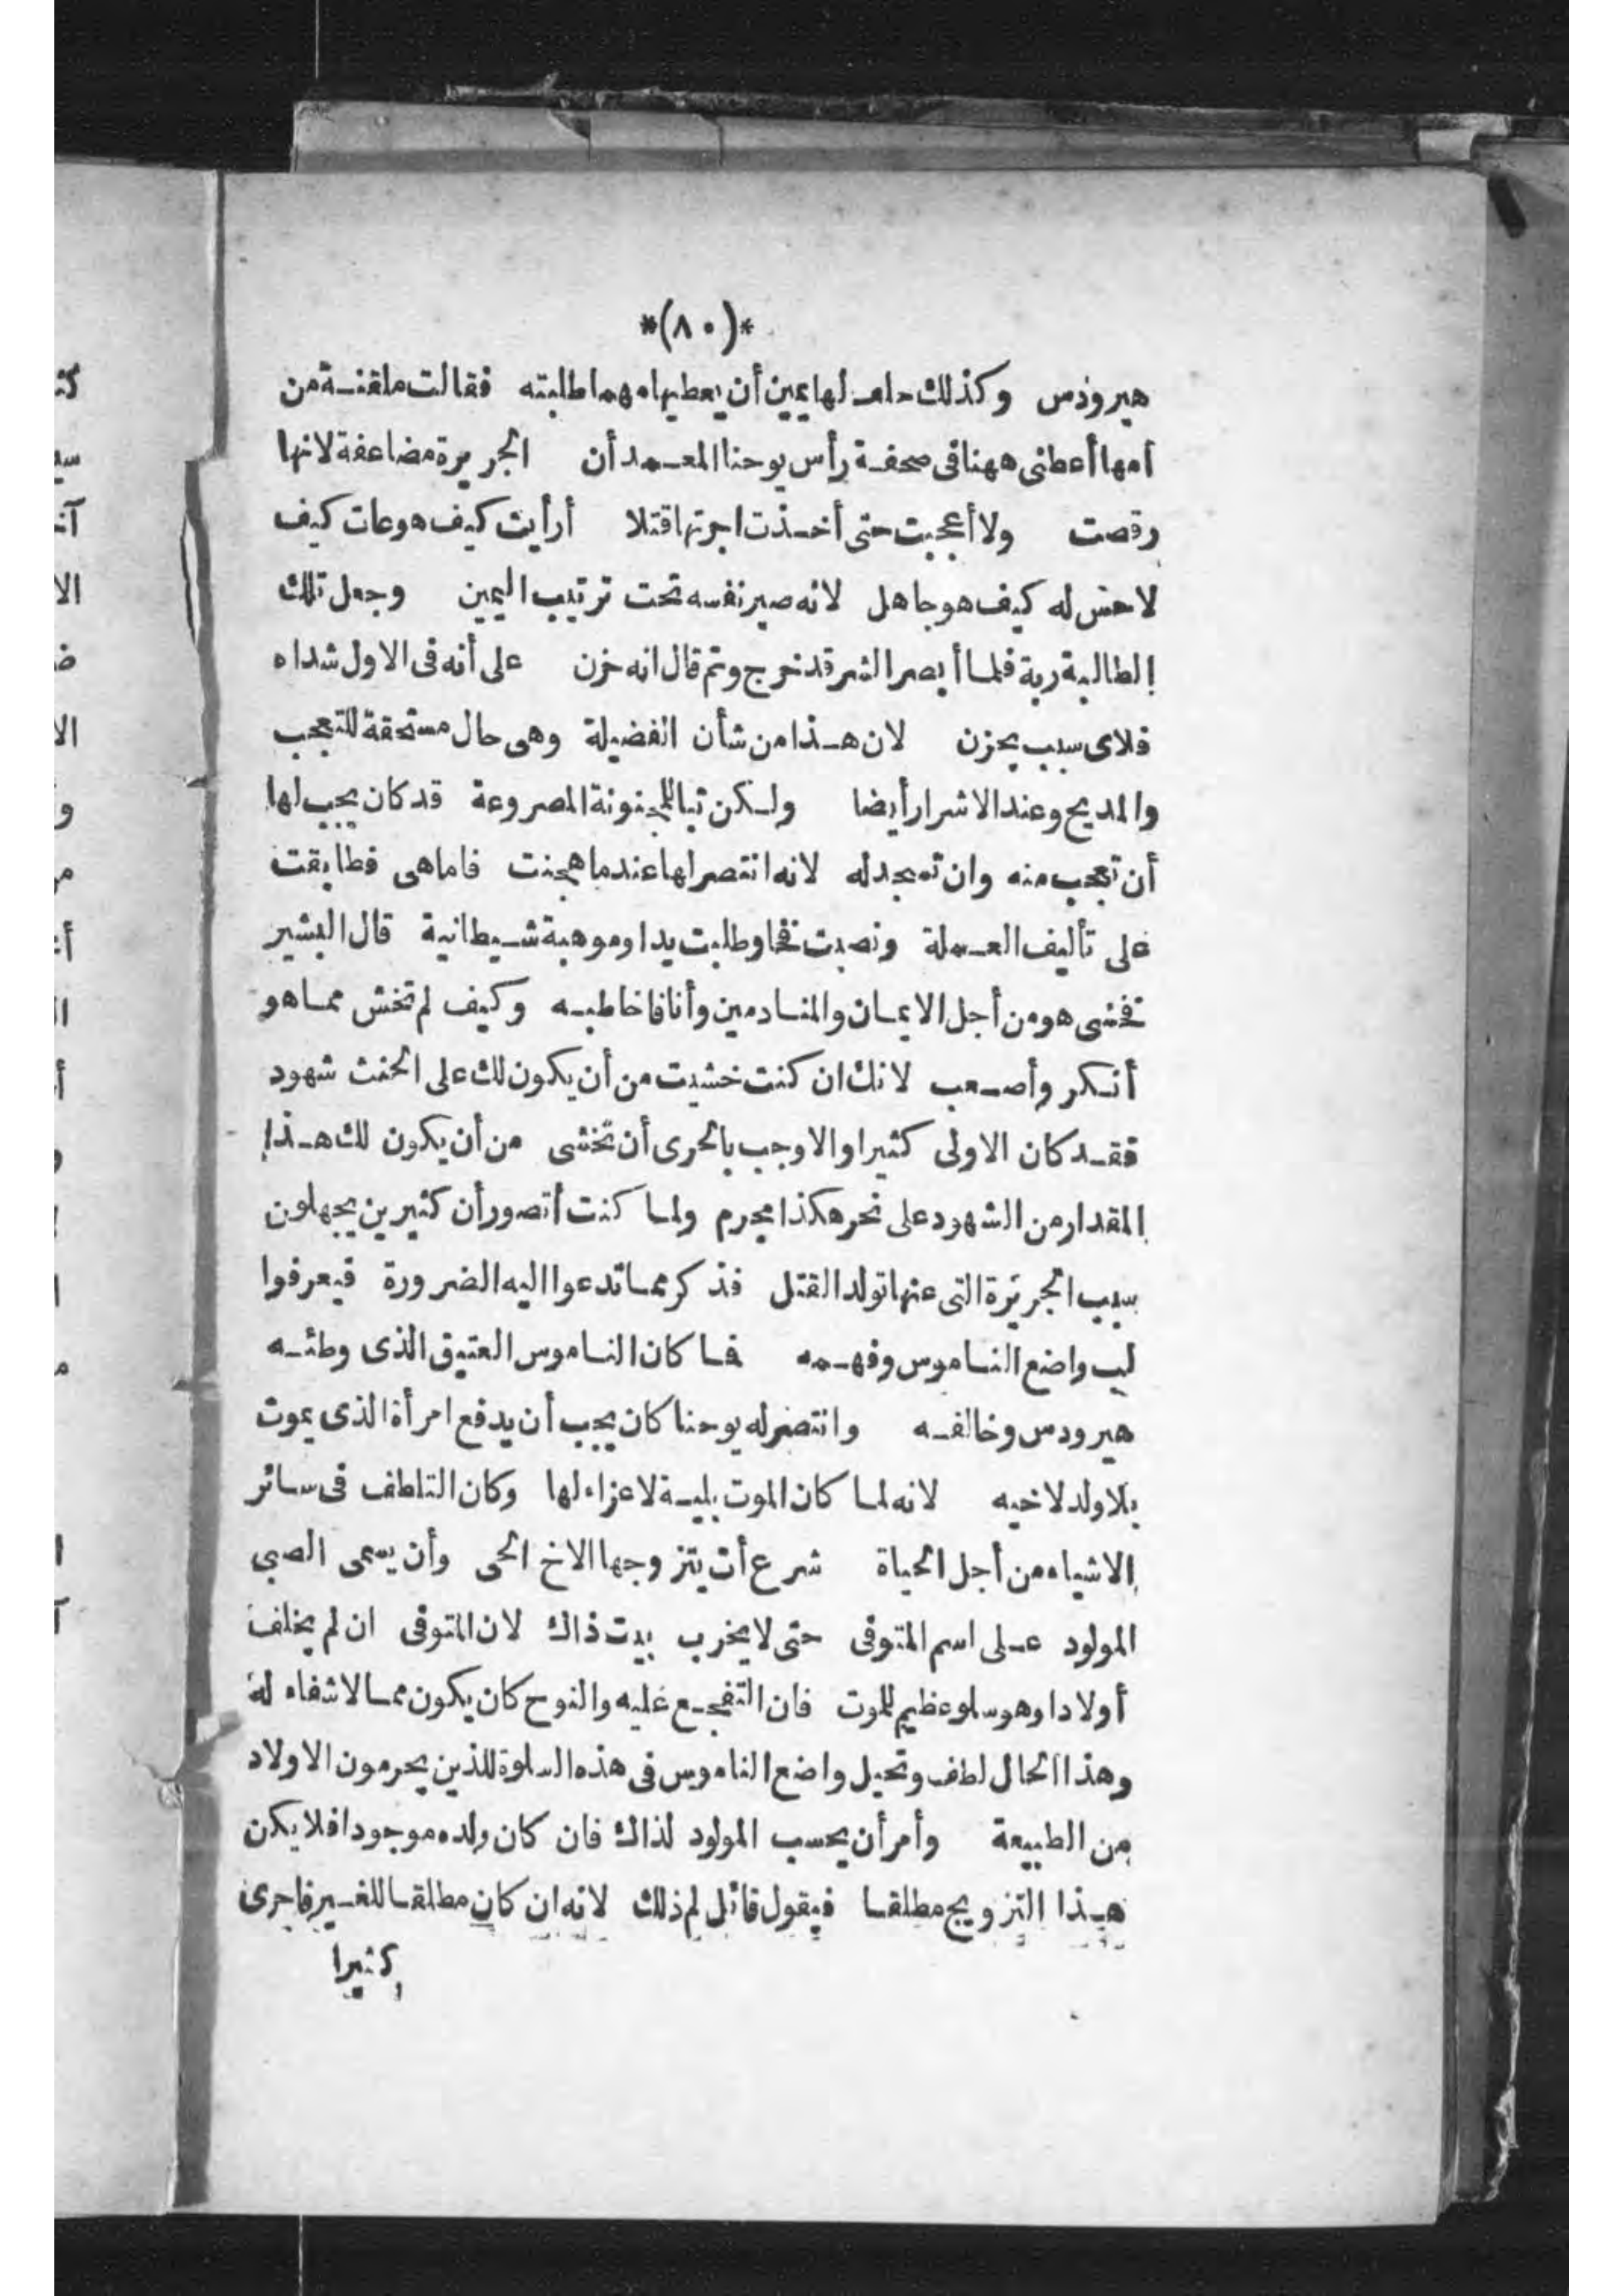 *(٨٠)*
هيرودس وكذلك حلف لها بيمين أن يعطيها مهما طلبته فقالت ملقنة من
أمها أعطنى ههنا فى صحفة رأس يوحنا المعمدان الجريرة مضاعفة لانها
رقصت ولا أعجبت حتى أخذت اجرتها قتلا أرأيت كيف هو عات كيف
لا حس له كيف هو جاهل لانه صير نفسه تحت ترتيب اليمين وجعل تلك
الطالبة ربة فلما أبصر الشر قد خرج وتم قال انه حزن على أنه فى الاول شداه
فلاى سبب يحزن لان هذا من شأن الفضيلة وهى حال مستحقة للتعجب
والمديح وعند الاشرار أيضا ولكن تبا للمجنونة المصروعة قد كان يجب لها
أن تعجب منه وان تمجد له لانه انتصر لها عندما هجنت فاما هى فطابقت
على تأليف العملة ونصبت فخا وطلبت يدا وموهبة شيطانية قال البشير
فخشى هو من أجل الايمان والمنادمين وأنا فاخاطبه وكيف لم تخش مما هو
أنكر وأصعب لانك ان كنت خشيت من أن يكون لك على الحنث شهود
فقد كان الاولى كثيرا والاوجب بالحرى أن تخشى من أن يكون لك هذا
المقدار من الشهود على نحر هكذا محرم ولما كنت أتصور أن كثيرين يجهلون
سبب الجريرة التى عنها تولد القتل فذكر مما تدعوا اليه الضرورة فيعرفوا
لب واضع الناموس وفهمه فما كان الناموس العتيق الذى وطئه
هيرودس وخالفه وانتصر له يوحنا كان يجب أن يدفع امرأة الذى يموت
بلا ولد لاخيه لانه لما كان الموت بلية لا عزاء لها وكان التلطف فى سائر
الاشياء من أجل الحياة شرع أن يتزوجها الاخ الحى وأن يسمى الصبى
المولود على اسم المتوفى حتى لا يخرب بيت ذاك لان المتوفى ان لم يخلف
أولادا وهو سلو عظيم للموت فان التفجع عليه والنوح كان يكون مما لا شفاء له
وهذا الحال لطف وتحيل واضع الناموس فى هذه السلوة للذين يحرمون الاولاد
من الطبيعة وأمر أن يحسب المولود لذاك فان كان ولده موجودا فلا يكن
هذا التزويج مطلقا فيقول قائل لم ذلك لانه ان كان مطلقا للغير فاحرى
كثيرا